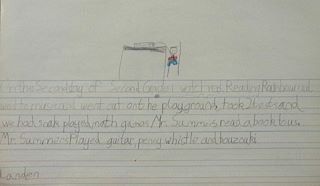 On the Second day of Second Grade I watched Reading Rainbow and
went to music and went out on the playground, took 2 tests and
we had snak played math games Mr. Summers read a book
Mr. Summers Played guitar, penny whistle and bouzouki.
Landen